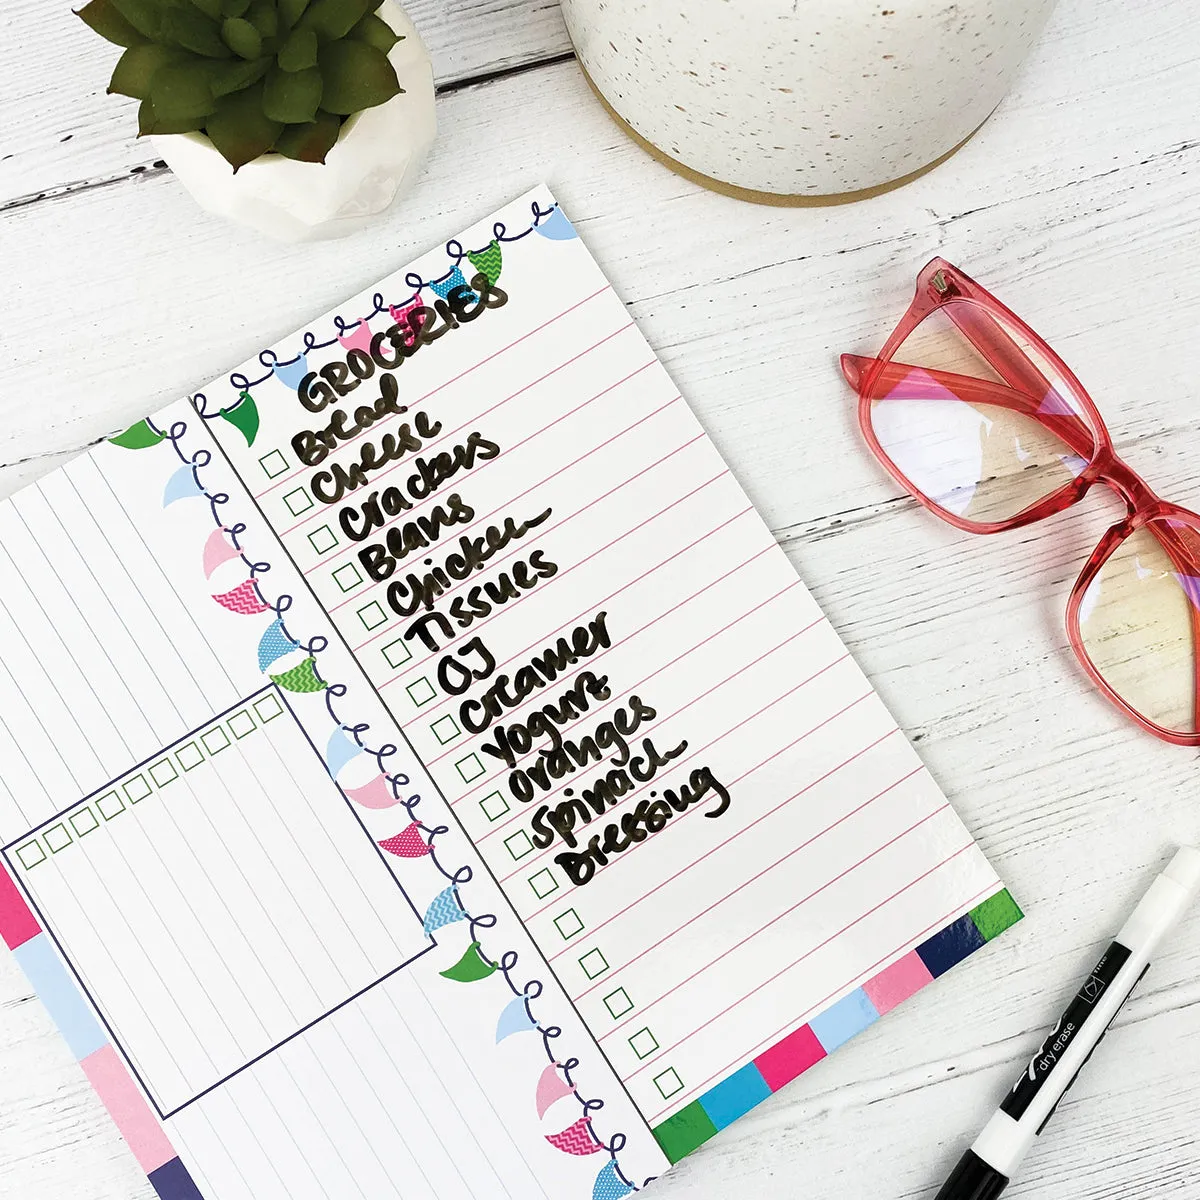 GROCERIES
Bread
Cheese
Crackers
Beans
Chicken
Tissues
OJ
Creamer
Yogurt
Oranges
Spinach
Dressing
dry erase
fine